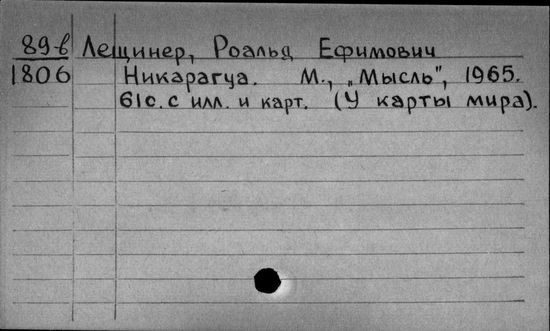 89-в Лещинер, Роальд Ефимович
1806 Никарагуа. М., „Мысль", 1965.
61с. с илл. и карт. (У карты мира).